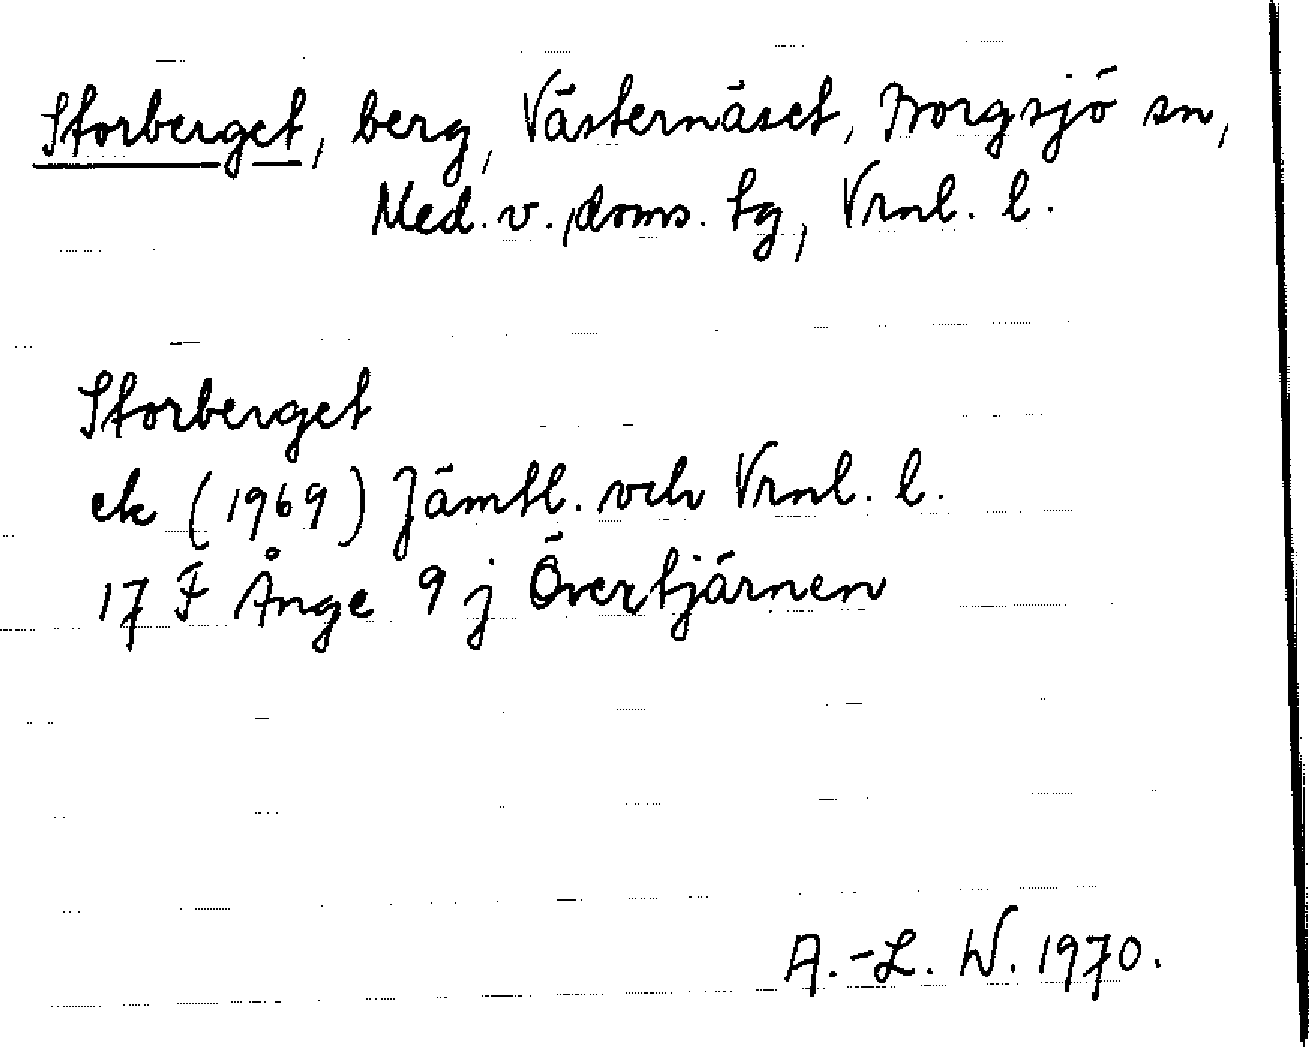 Storberget, berg, Västernäset, Borgsjö sn,
Med. v. doms. tg, Vrnl. l.
Storberget
ek (1969) Jämtl. och Vrnl. l.
17 F Ånge 9 j Övertjärnen
A.-L. W. 1970.